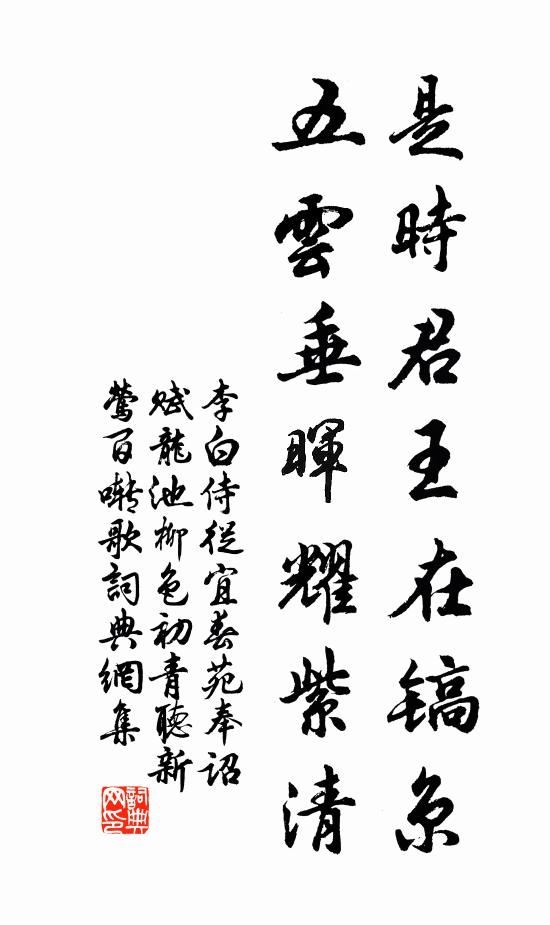 是時君王在镐京
五雲垂暉耀紫清
李白侍從宜春苑奉詔
賦龍池柳色初青聽新
鶯百囀歌詞典網集
詞典
网印